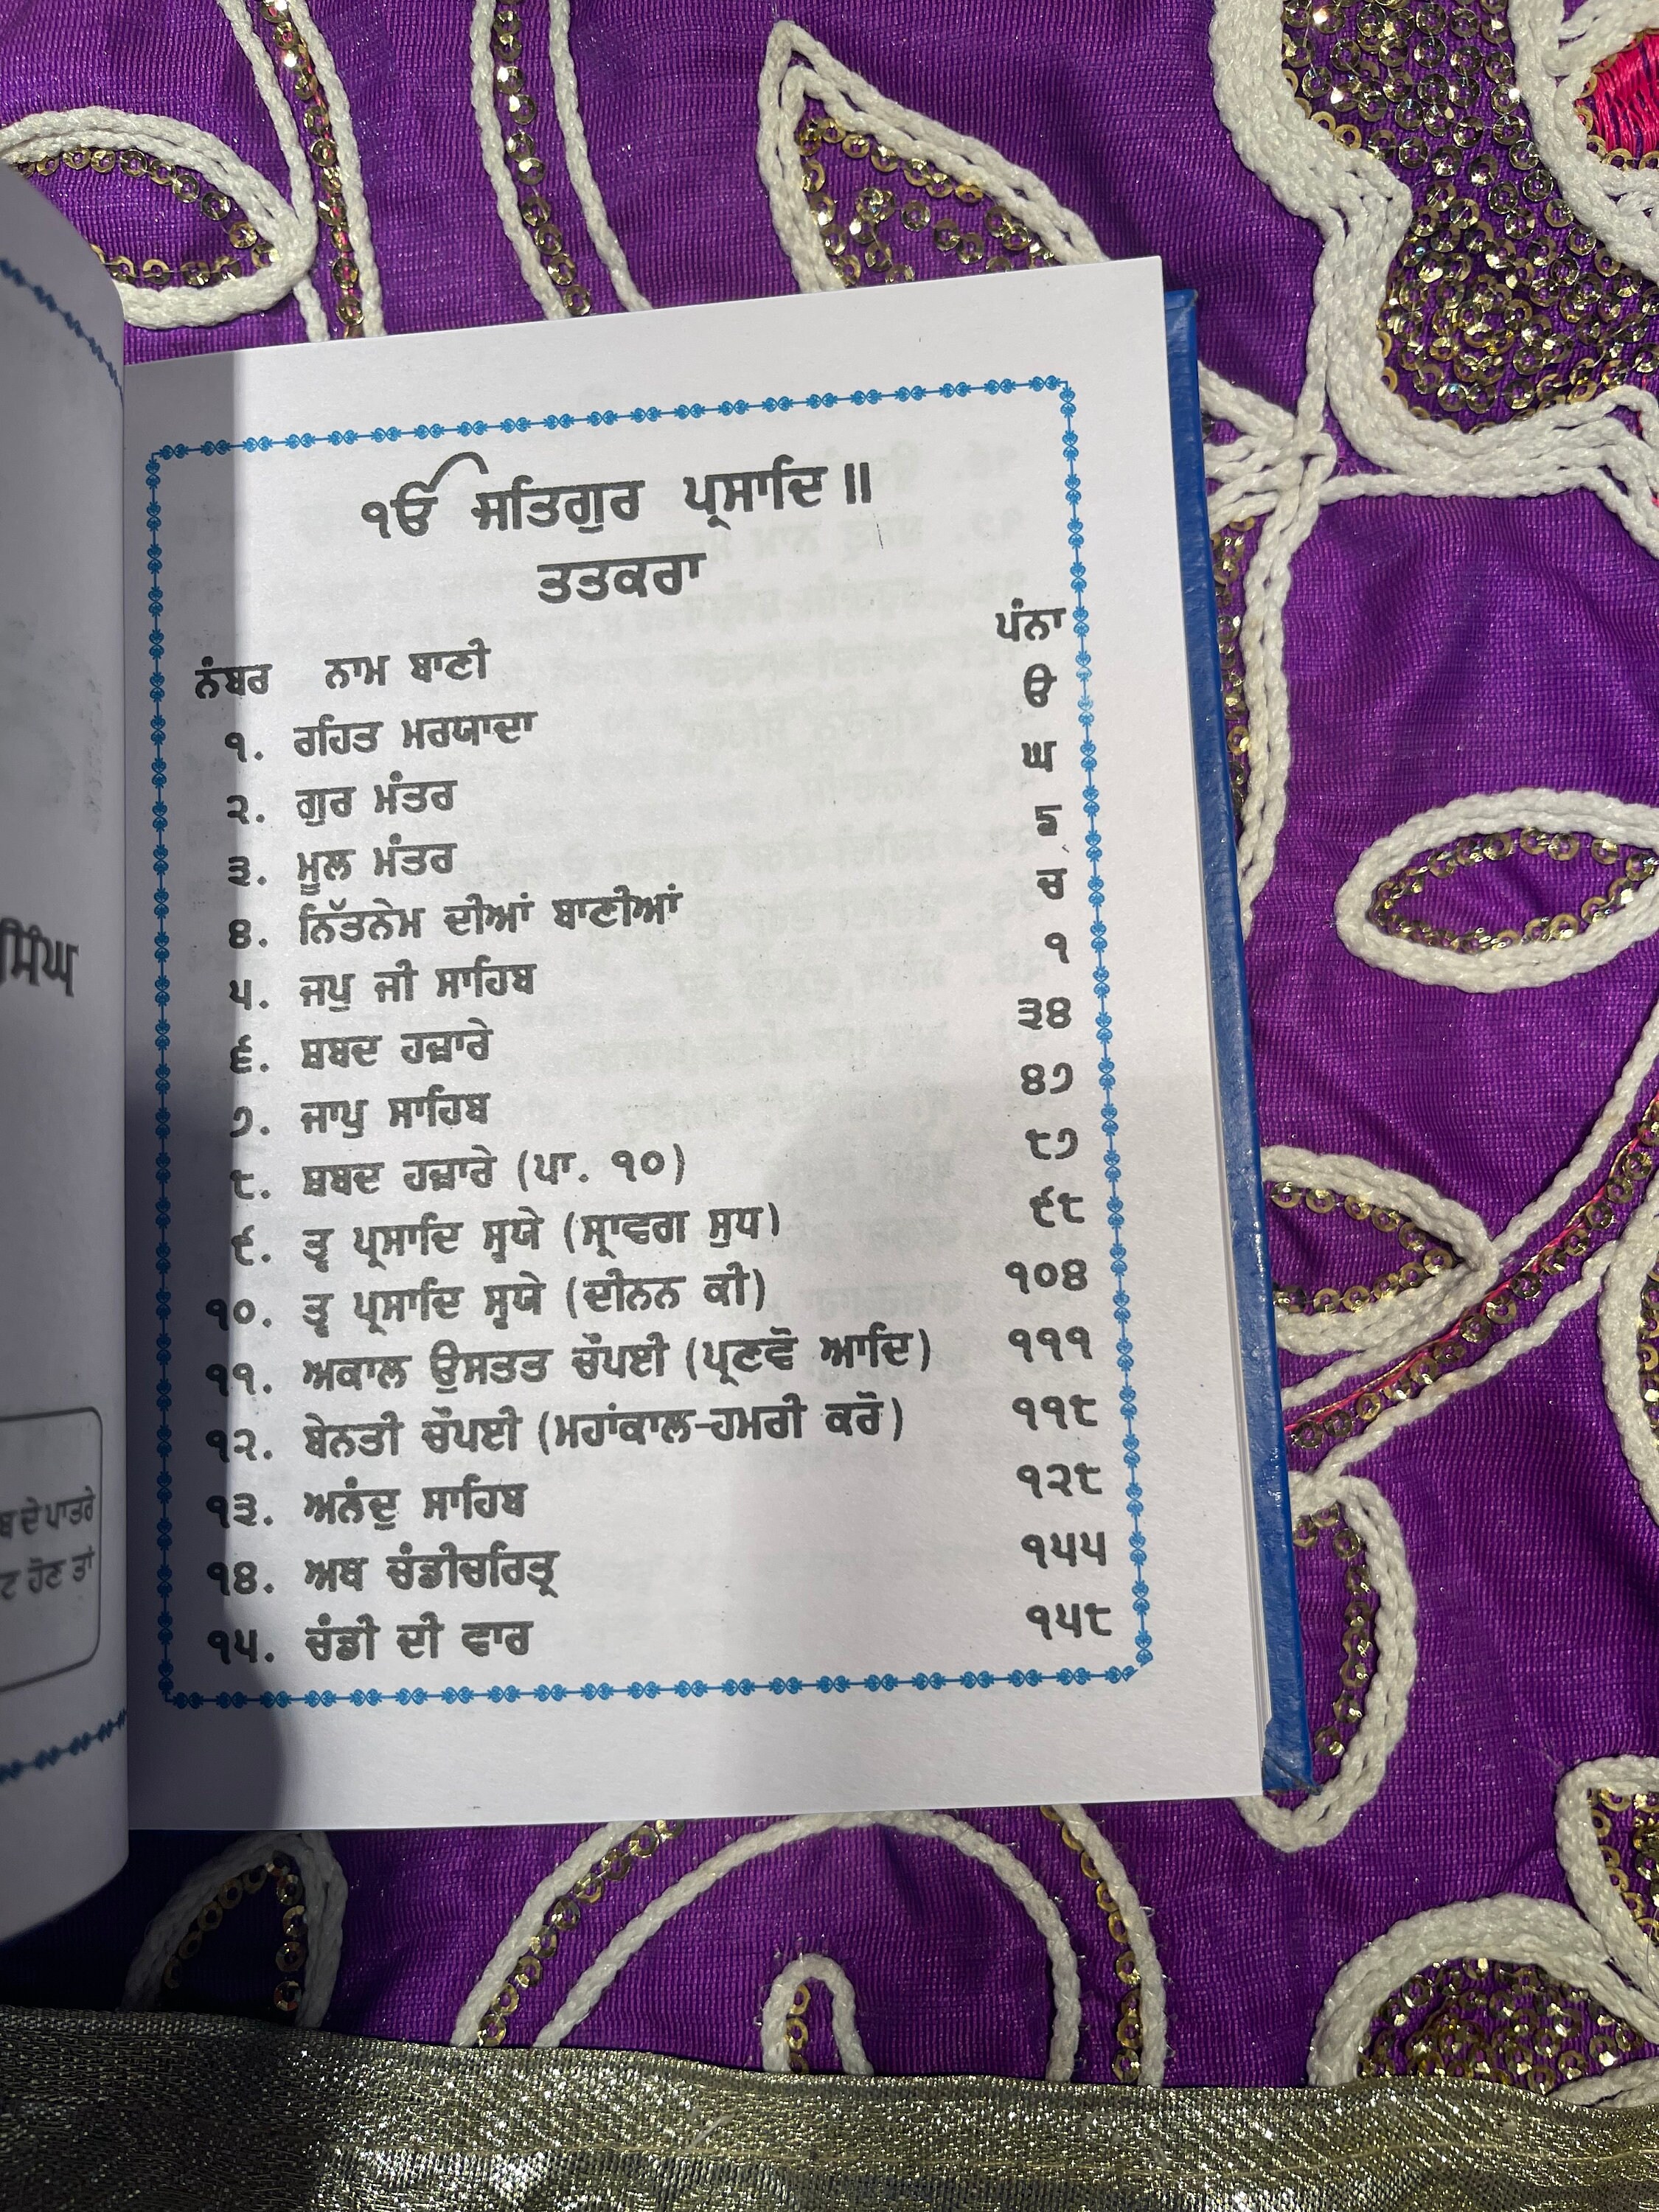 ਸਿੰਘ
ਦੇ ਪਾਤਰੇ
ਹੋਣ ਤਾਂ
ੴ ਸਤਿਗੁਰ ਪ੍ਰਸਾਦਿ॥
ਤਤਕਰਾ
ਨੰਬਰ ਨਾਮ ਬਾਣੀ ਪੰਨਾ
੧. ਰਹਿਤ ਮਰਯਾਦਾ ੳ
੨. ਗੁਰ ਮੰਤਰ ਘ
੩. ਮੂਲ ਮੰਤਰ ਙ
੪. ਨਿੱਤਨੇਮ ਦੀਆਂ ਬਾਣੀਆਂ ਚ
੫. ਜਪੁ ਜੀ ਸਾਹਿਬ ੧
੬. ਸ਼ਬਦ ਹਜ਼ਾਰੇ ੩੪
੭. ਜਾਪੁ ਸਾਹਿਬ ੪੭
੮. ਸ਼ਬਦ ਹਜ਼ਾਰੇ (ਪਾ. ੧੦) ੮੭
੯. ਤ੍ਵ ਪ੍ਰਸਾਦਿ ਸ੍ਵਯੇ (ਸ੍ਰਾਵਗ ਸੁਧ) ੯੮
੧੦. ਤ੍ਵ ਪ੍ਰਸਾਦਿ ਸ੍ਵਯੇ (ਦੀਨਨ ਕੀ) ੧੦੪
੧੧. ਅਕਾਲ ਉਸਤਤ ਚੌਪਈ (ਪ੍ਰਣਵੋ ਆਦਿ) ੧੧੧
੧੨. ਬੇਨਤੀ ਚੌਪਈ (ਮਹਾਂਕਾਲ-ਹਮਰੀ ਕਰੋ) ੧੧੮
੧੩. ਅਨੰਦੁ ਸਾਹਿਬ ੧੨੮
੧੪. ਅਥ ਚੰਡੀਚਰਿਤ੍ਰ ੧੫੫
੧੫. ਚੰਡੀ ਦੀ ਵਾਰ ੧੫੮